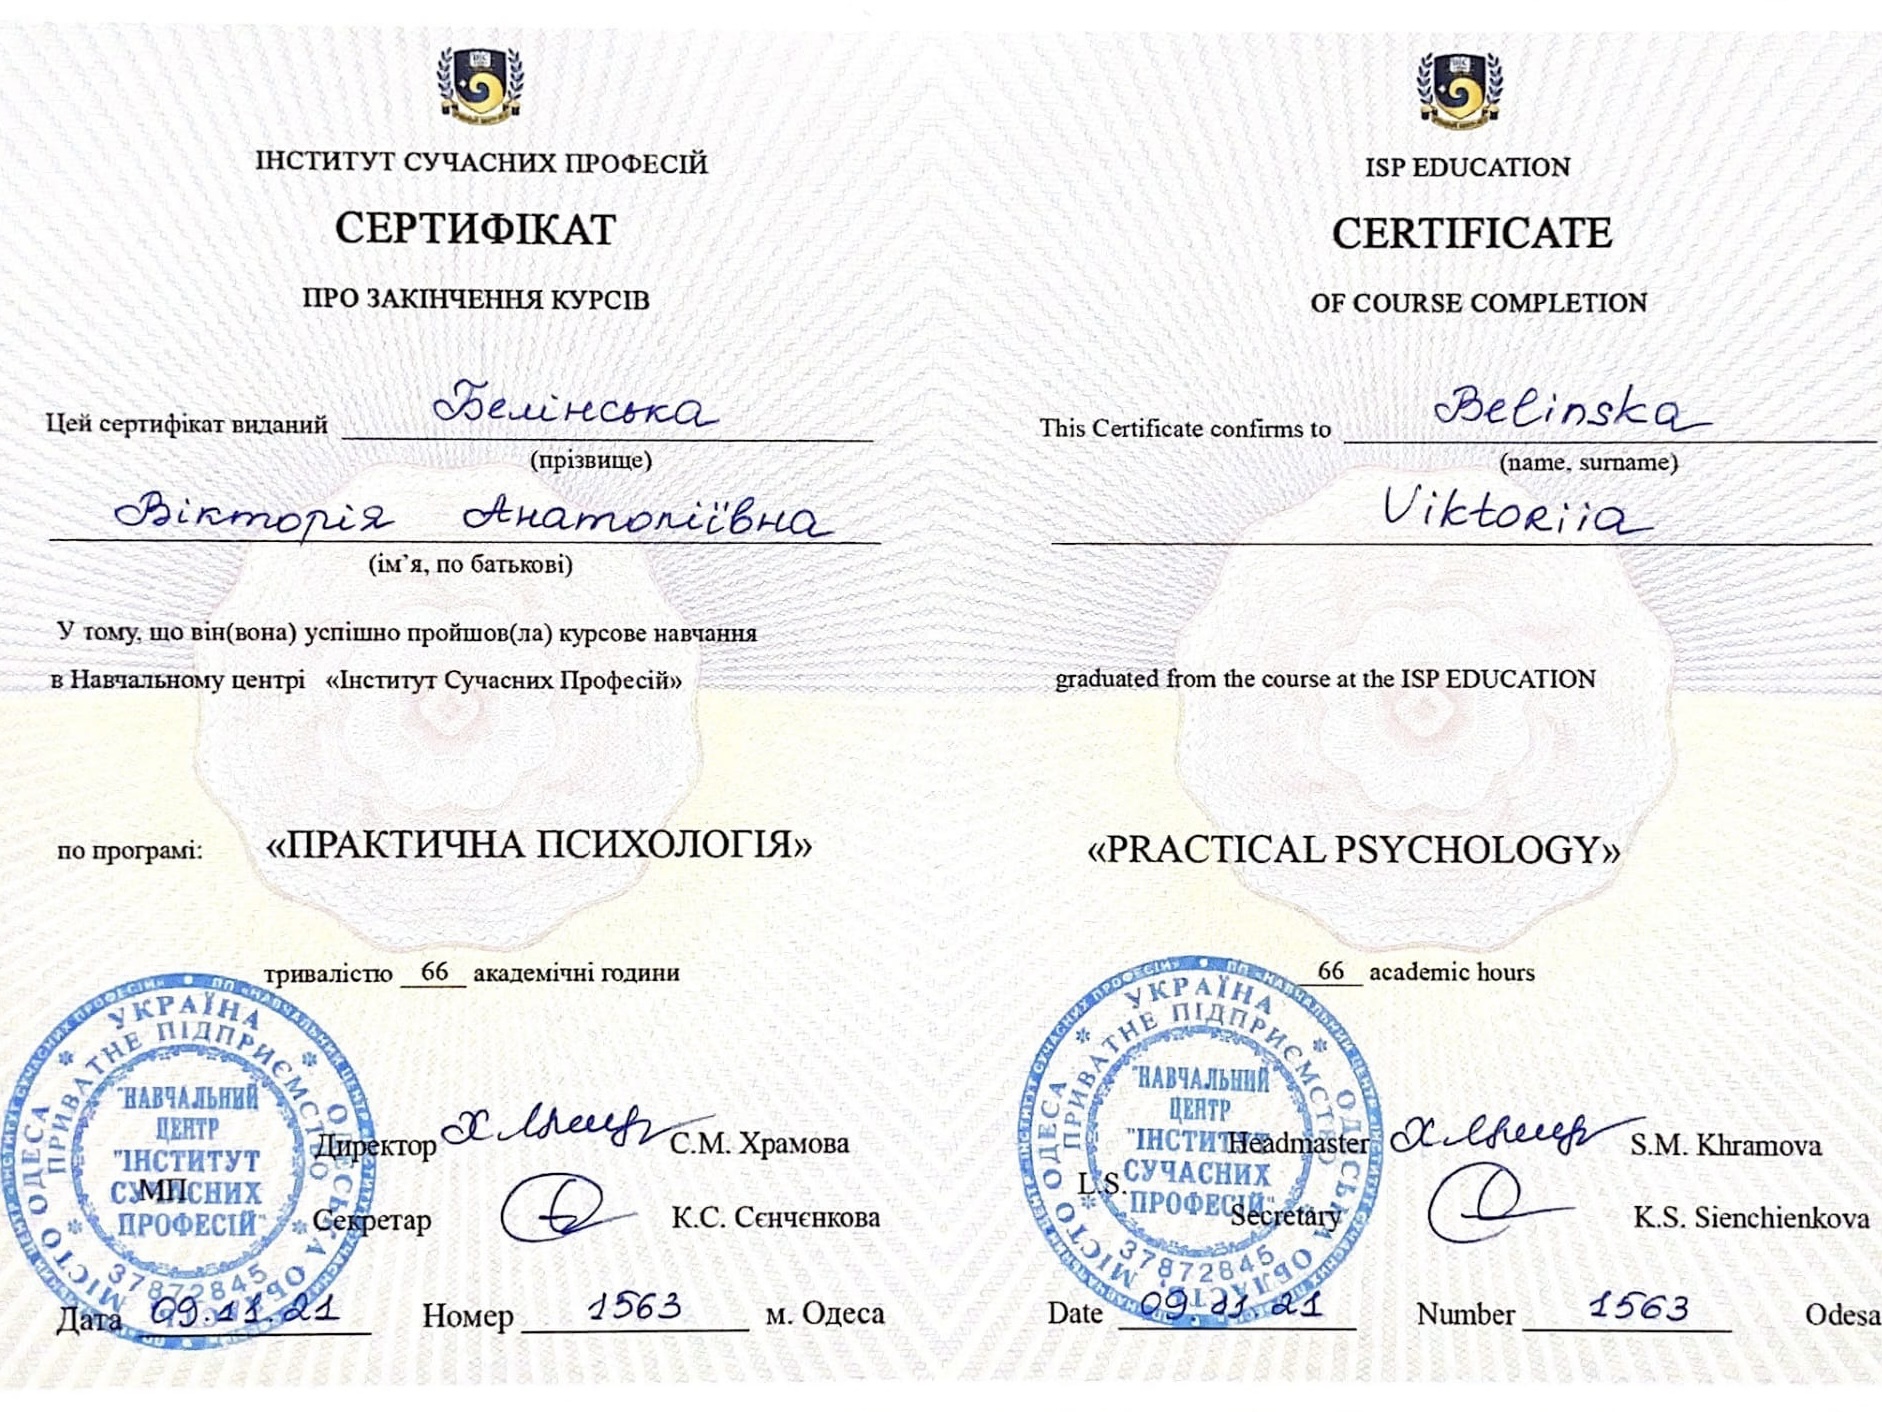 ІНСТИТУТ СУЧАСНИХ ПРОФЕСІЙ
СЕРТИФІКАТ
ПРО ЗАКІНЧЕННЯ КУРСІВ
Цей сертифікат виданий Белінська
(прізвище)
Вікторія Анатоліївна
(ім’я, по батькові)
У тому, що він(вона) успішно пройшов(ла) курсове навчання
в Навчальному центрі «Інститут Сучасних Професій»
по програмі: «ПРАКТИЧНА ПСИХОЛОГІЯ»
тривалістю 66 академічні години
УКРАЇНА
ПРИВАТНЕ ПІДПРИЄМСТВО
МІСТО ОДЕСА
ОДЕСЬКА ОБЛАСТЬ
"НАВЧАЛЬНИЙ
ЦЕНТР
"ІНСТИТУТ
СУЧАСНИХ
ПРОФЕСІЙ"
37872845
Директор С.М. Храмова
МП
Секретар К.С. Сєнчєнкова
Дата 09.11.21 Номер 1563 м. Одеса
ISP EDUCATION
CERTIFICATE
OF COURSE COMPLETION
This Certificate confirms to Belinska
(name, surname)
Viktoriia
graduated from the course at the ISP EDUCATION
«PRACTICAL PSYCHOLOGY»
66 academic hours
УКРАЇНА
ПРИВАТНЕ ПІДПРИЄМСТВО
МІСТО ОДЕСА
ОДЕСЬКА ОБЛАСТЬ
"НАВЧАЛЬНИЙ
ЦЕНТР
"ІНСТИТУТ
СУЧАСНИХ
ПРОФЕСІЙ"
37872845
Headmaster S.M. Khramova
L.S.
Secretary K.S. Sienchienkova
Date 09.11.21 Number 1563 Odesa